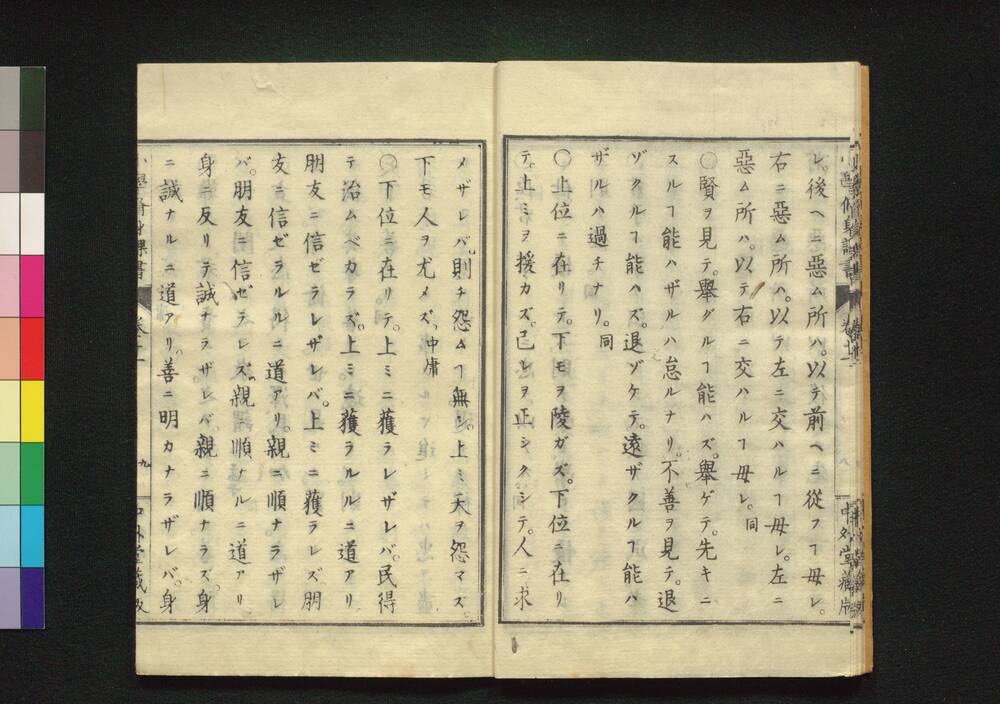 レ。後ヘニ惡ム所ハ。以テ前ヘニ從フヿ毋レ。
右ニ惡ム所ハ。以テ左ニ交ハルヿ毋レ。左ニ
惡ム所ハ。以テ右ニ交ハルヿ毋レ。同
〇賢ヲ見テ。舉グルヿ能ハズ。舉ゲテ。先キニ
スルヿ能ハザルハ怠ルナリ。不善ヲ見テ。退
ゾクルヿ能ハズ。退ゾケテ。遠ザクルヿ能ハ
ザルハ過チナリ。同
〇上位ニ在リテ。下モヲ陵ガズ。下位ニ在リ
テ。上ミヲ援カズ。己レヲ正シクシテ。人ニ求
メザレバ。則チ怨ムヿ無シ。上ミ天ヲ怨マズ。
下モ人ヲ尤メズ。中庸
〇下位ニ在リテ。上ミニ獲ラレザレバ。民得
テ治ムベカラズ。上ミニ獲ラルルニ道アリ
朋友ニ信ゼラレザレバ。上ミニ獲ラレズ朋
友ニ信ゼラルルニ道アリ。親ニ順ナラザレ
バ。朋友ニ信ゼラレズ。親ニ順ナルニ道アリ
身ニ反リテ誠ナラザレバ。親ニ順ナラズ。身
ニ誠ナルニ道アリ。善ニ明カナラザレバ。身
小學修身課書 卷二 九 中外堂藏版